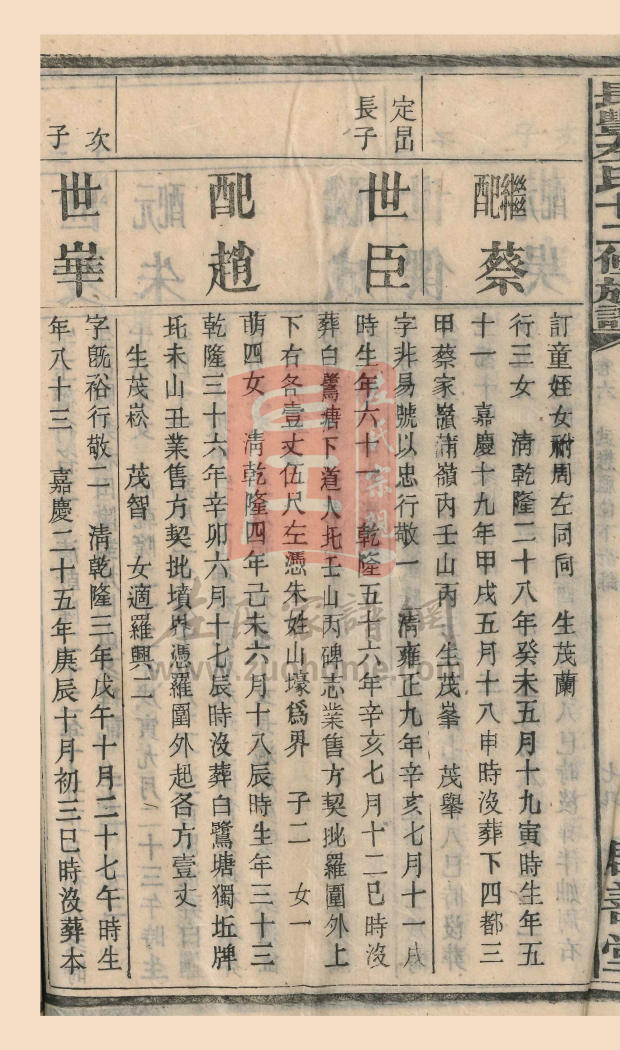 長豐左氏十二修族譜
卷六
繼配 蔡
訂童姪女祔周左同向 生茂蘭
行三女 清乾隆二十八年癸未五月十九寅時生年五
十一 嘉慶十九年甲戌五月十八申時沒葬下四都三
甲蔡家嶺蒲嶺丙壬山丙 生茂峯 茂舉
定邑
長子
世臣
字非易號以忠行敬一 清雍正九年辛亥七月十一戌
時生年六十一 乾隆五十六年辛亥七月十二巳時沒
葬白鷺塘下道人坵壬山丙碑志業售方契批羅圍外上
下右各壹丈伍尺左憑朱姓山壕爲界 子二 女一
配趙
萌四女 清乾隆四年己未六月十八辰時生年三十三
乾隆三十六年辛卯六月十七辰時沒葬白鷺塘獨坵牌
坵未山丑業售方契批墳界憑羅圍外起各方壹丈
生茂崧 茂智 女適羅興二
次子
世華
字旣裕行敬二 清乾隆三年戊午十月二十七午時生
年八十三 嘉慶二十五年庚辰十月初三巳時沒葬本
左氏宗親
左氏家譜網
www.zuohome.com